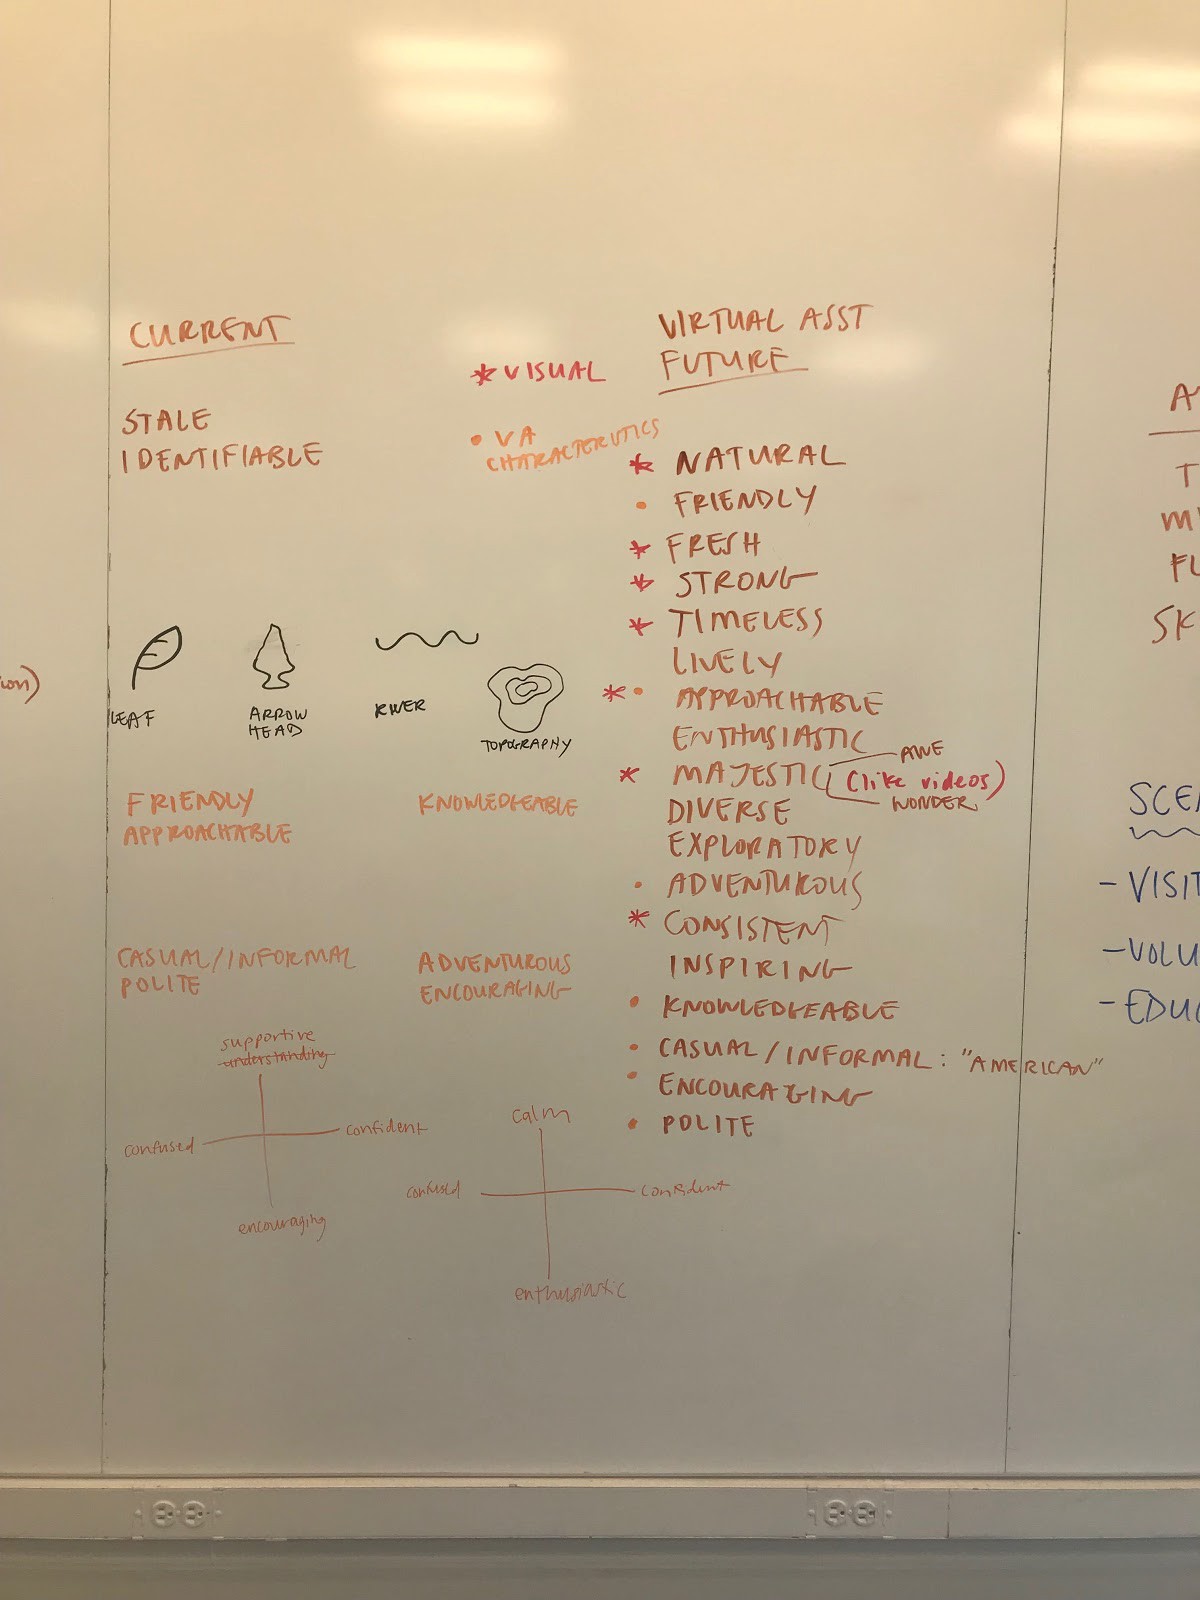 CURRENT
STALE
IDENTIFIABLE
* VISUAL
• VA
CHARACTERISTICS
VIRTUAL ASST
FUTURE
* NATURAL
• FRIENDLY
* FRESH
* STRONG
* TIMELESS
LIVELY
* • APPROACHABLE
ENTHUSIASTIC
* MAJESTIC (like videos)
AWE
WONDER
DIVERSE
EXPLORATORY
• ADVENTUROUS
* CONSISTENT
INSPIRING
• KNOWLEDGEABLE
• CASUAL/INFORMAL: "AMERICAN"
• ENCOURAGING
• POLITE
LEAF
ARROW
HEAD
RIVER
TOPOGRAPHY
FRIENDLY
APPROACHABLE
KNOWLEDGEABLE
CASUAL/INFORMAL
POLITE
ADVENTUROUS
ENCOURAGING
supportive
understanding
confused
confident
encouraging
calm
confused
confident
enthusiastic
ion)
SCE
- VISIT
- VOLU
- EDUC